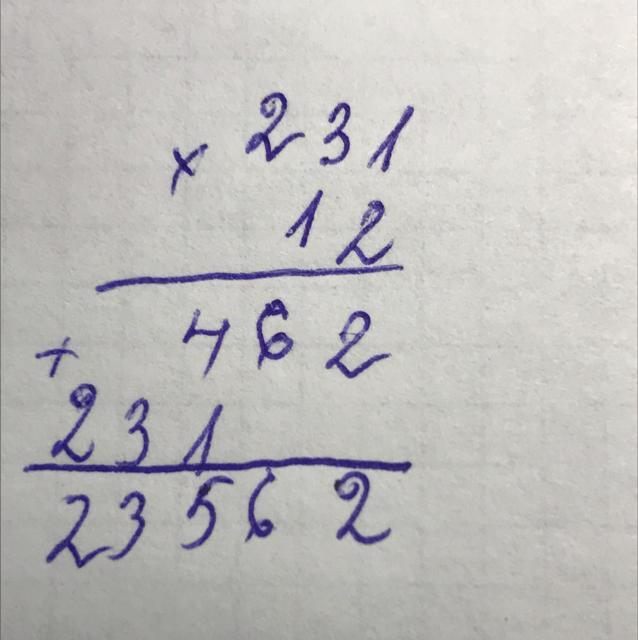 × 231
12
+ 462
231
23562